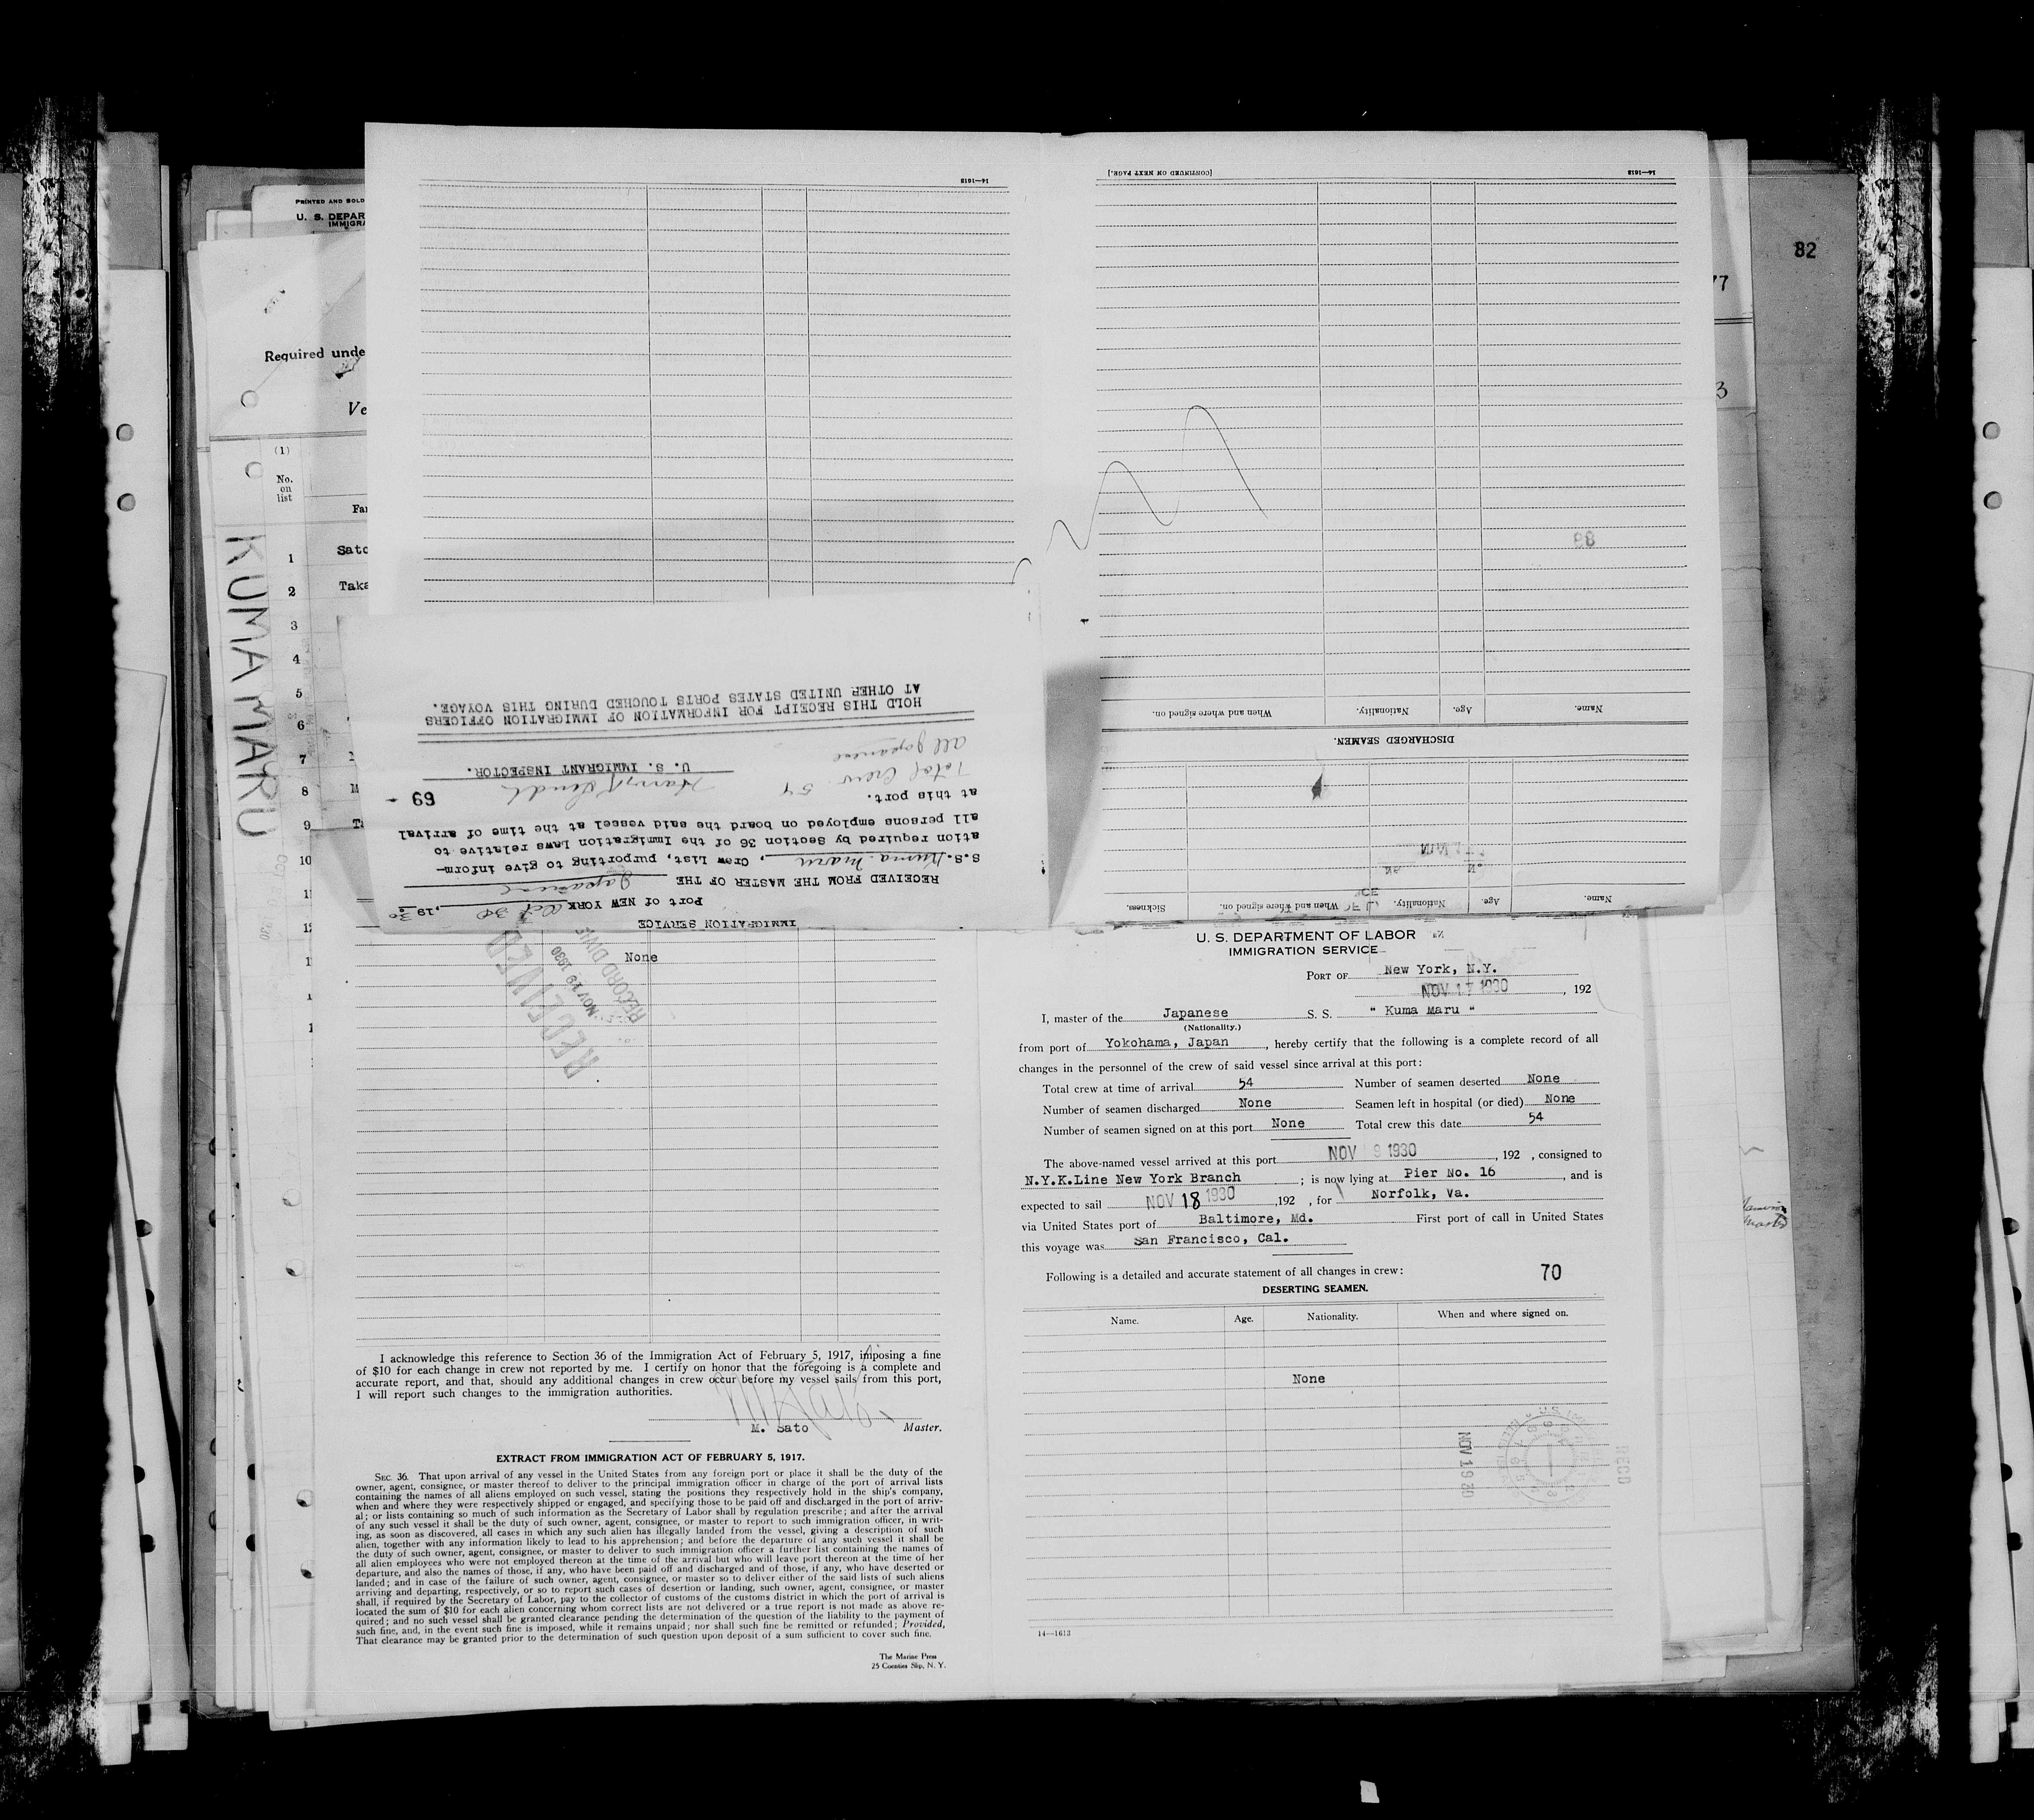 82
77
3
PRINTED AND SOLD
U. S. DEPAR
IMMIGRA
Required unde
Ve
(1)
No.
on
list
Fa
1
Sato
2
Taka
3
4
5
6
7
8
M
9
T
10
11
KUMA MARU
14—1613
[CONTINUED ON NEXT PAGE.]
14—1613
88
Name.
Age.
Nationality.
When and where signed on.
DISCHARGED SEAMEN.
Name.
Age.
Nationality.
When and where signed on.
Sickness.
IMMIGRATION SERVICE
Port of NEW YORK Oct 30, 1930
RECEIVED FROM THE MASTER OF THE Japanese
S.S. Kuma Maru, Crew List, purporting to give inform-
ation required by Section 36 of the Immigration Laws relative to
all persons employed on board the said vessel at the time of arrival
at this port.
69
Total Crew 54
All Japanese
U. S. IMMIGRANT INSPECTOR.
HOLD THIS RECEIPT FOR INFORMATION OF IMMIGRATION OFFICERS
AT OTHER UNITED STATES PORTS TOUCHED DURING THIS VOYAGE.
None
RECEIVED
NOV 19 1930
RECORD DIV.
I acknowledge this reference to Section 36 of the Immigration Act of February 5, 1917, imposing a fine
of $10 for each change in crew not reported by me. I certify on honor that the foregoing is a complete and
accurate report, and that, should any additional changes in crew occur before my vessel sails from this port,
I will report such changes to the immigration authorities.
M. Sato
M. Sato Master.
EXTRACT FROM IMMIGRATION ACT OF FEBRUARY 5, 1917.
SEC. 36. That upon arrival of any vessel in the United States from any foreign port or place it shall be the duty of the
owner, agent, consignee, or master thereof to deliver to the principal immigration officer in charge of the port of arrival lists
containing the names of all aliens employed on such vessel, stating the positions they respectively hold in the ship's company,
when and where they were respectively shipped or engaged, and specifying those to be paid off and discharged in the port of arriv-
al; or lists containing so much of such information as the Secretary of Labor shall by regulation prescribe; and after the arrival
of any such vessel it shall be the duty of such owner, agent, consignee, or master to report to such immigration officer, in writ-
ing, as soon as discovered, all cases in which any such alien has illegally landed from the vessel, giving a description of such
alien, together with any information likely to lead to his apprehension; and before the departure of any such vessel it shall be
the duty of such owner, agent, consignee, or master to deliver to such immigration officer a further list containing the names of
all alien employees who were not employed thereon at the time of the arrival but who will leave port thereon at the time of her
departure, and also the names of those, if any, who have been paid off and discharged and of those, if any, who have deserted or
landed; and in case of the failure of such owner, agent, consignee, or master so to deliver either of the said lists of such aliens
arriving and departing, respectively, or so to report such cases of desertion or landing, such owner, agent, consignee, or master
shall, if required by the Secretary of Labor, pay to the collector of customs of the customs district in which the port of arrival is
located the sum of $10 for each alien concerning whom correct lists are not delivered or a true report is not made as above re-
quired; and no such vessel shall be granted clearance pending the determination of the question of the liability to the payment of
such fine, and, in the event such fine is imposed, while it remains unpaid; nor shall such fine be remitted or refunded; Provided,
That clearance may be granted prior to the determination of such question upon deposit of a sum sufficient to cover such fine.
The Marine Press
25 Coenties Slip, N. Y.
U. S. DEPARTMENT OF LABOR
IMMIGRATION SERVICE
PORT OF New York, N.Y.
NOV 17 1930, 192
I, master of the Japanese S. S. " Kuma Maru "
(Nationality.)
from port of Yokohama, Japan, hereby certify that the following is a complete record of all
changes in the personnel of the crew of said vessel since arrival at this port:
Total crew at time of arrival 54 Number of seamen deserted None
Number of seamen discharged None Seamen left in hospital (or died) None
Number of seamen signed on at this port None Total crew this date 54
The above-named vessel arrived at this port NOV 9 1930, 192 , consigned to
N.Y.K.Line New York Branch ; is now lying at Pier No. 16, and is
expected to sail NOV 18 1930, 192 , for Norfolk, Va.
via United States port of Baltimore, Md. First port of call in United States
this voyage was San Francisco, Cal.
Following is a detailed and accurate statement of all changes in crew:
70
DESERTING SEAMEN.
Name. Age. Nationality. When and where signed on.
None
NOV 19 30
RECD
14—1613